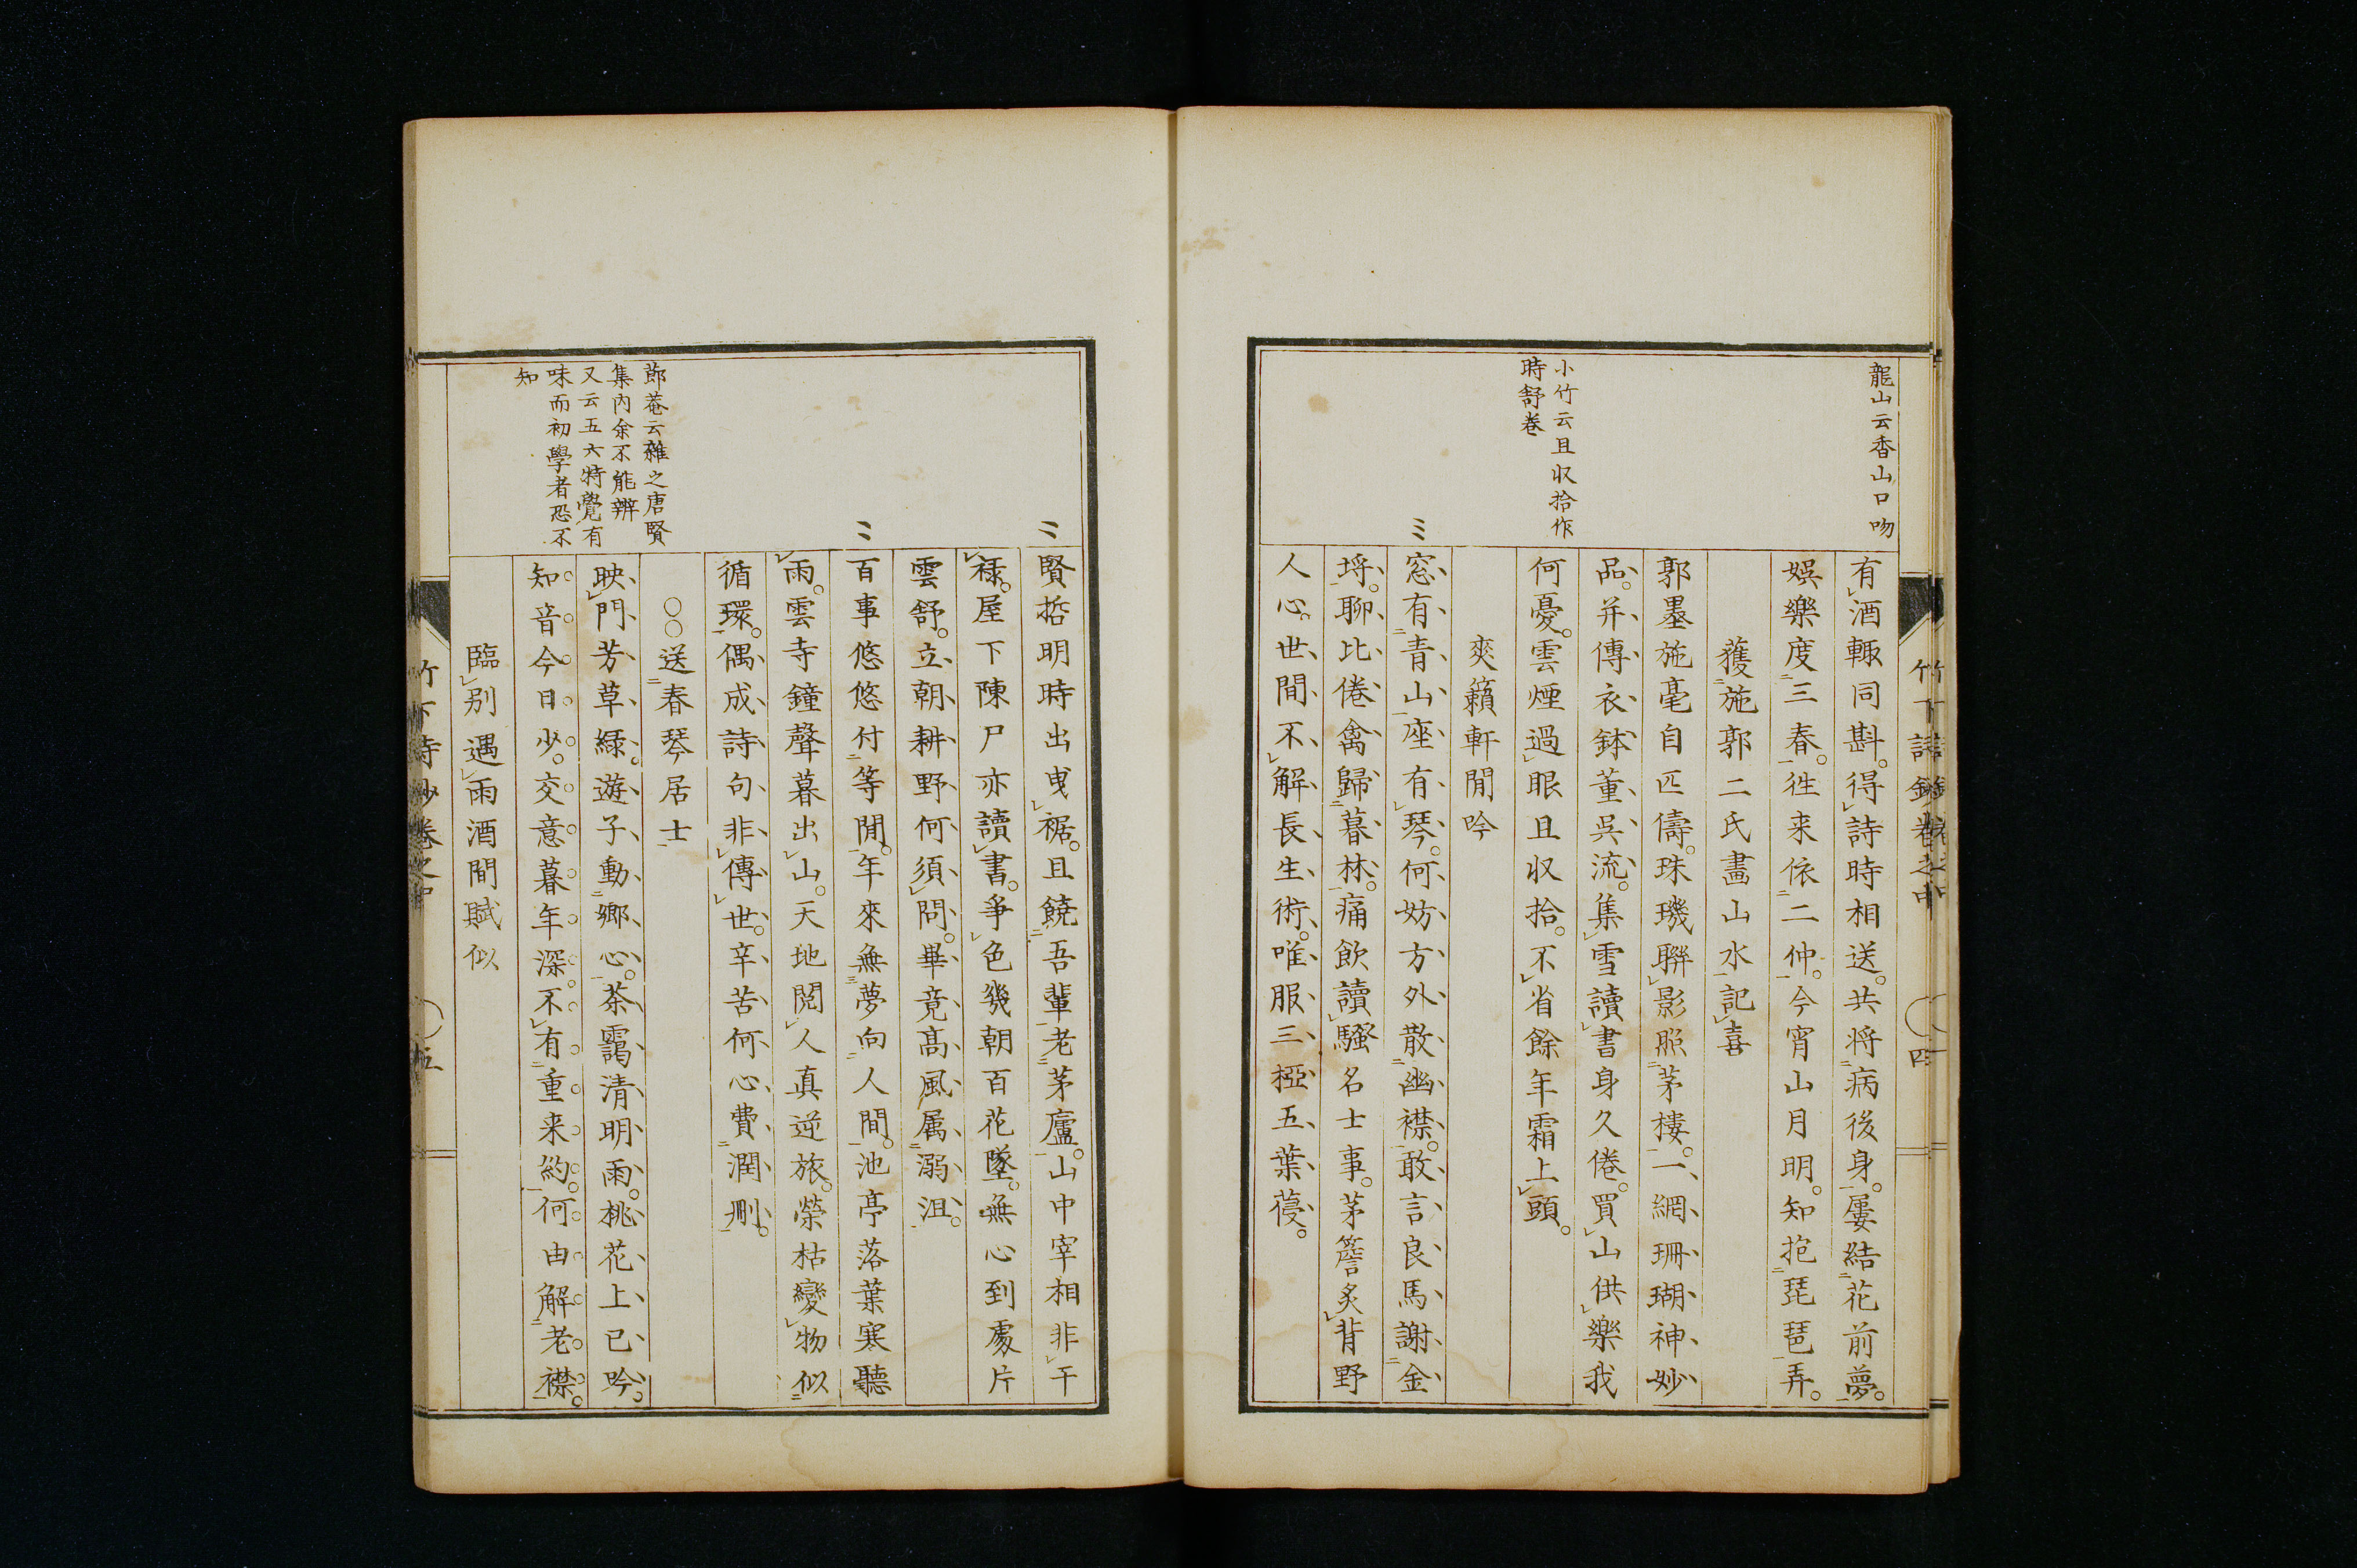 龍山云香山口吻
有酒輙同斟。得詩時相送。共将病後身。屢結花前夢。
娯樂度三春。徃来依二仲。今宵山月明。知抱琵琶弄。
獲施郭二氏畫山水記喜
郭墨施毫自匹儔。珠璣聯影照茅樓。一網珊瑚神妙
品。并傳衣鉢董呉流。集雪讀書身久倦。買山供樂我
小竹云且収拾作
時舒卷
何憂。雲煙過眼且収拾。不省餘年霜上頭。
爽籟軒閒吟
窓有青山座有琴。何妨方外散幽襟。敢言良馬謝金
埓。聊比倦禽歸暮林。痛飲讀騒名士事。茅簷炙背野
人心。世間不解長生術。唯服三椏五葉葠。
竹下詩鈔卷之中
四
賢哲明時出曳裾。且饒吾輩老茅廬。山中宰相非干
禄。屋下陳尸亦讀書。爭色幾朝百花墜。無心到處片
雲舒。立朝耕野何須問。畢竟髙風属溺沮。
百事悠悠付等閒。年來無夢向人間。池亭落葉寒聽
雨。雲寺鐘聲暮出山。天地閲人真逆旅。榮枯變物似
循環。偶成詩句非傳世。辛苦何心費潤刪。
節菴云雜之唐賢
集内余不能辨
又云五六特覺有
味而初學者恐不
知
○○送春琴居士
映門芳草緑。遊子動郷心。茶靄清明雨。桃花上巳吟。
知音今日少。交意暮年深。不有重来約。何由解老襟。
臨别遇雨酒間賦似
竹下詩鈔卷之中
五